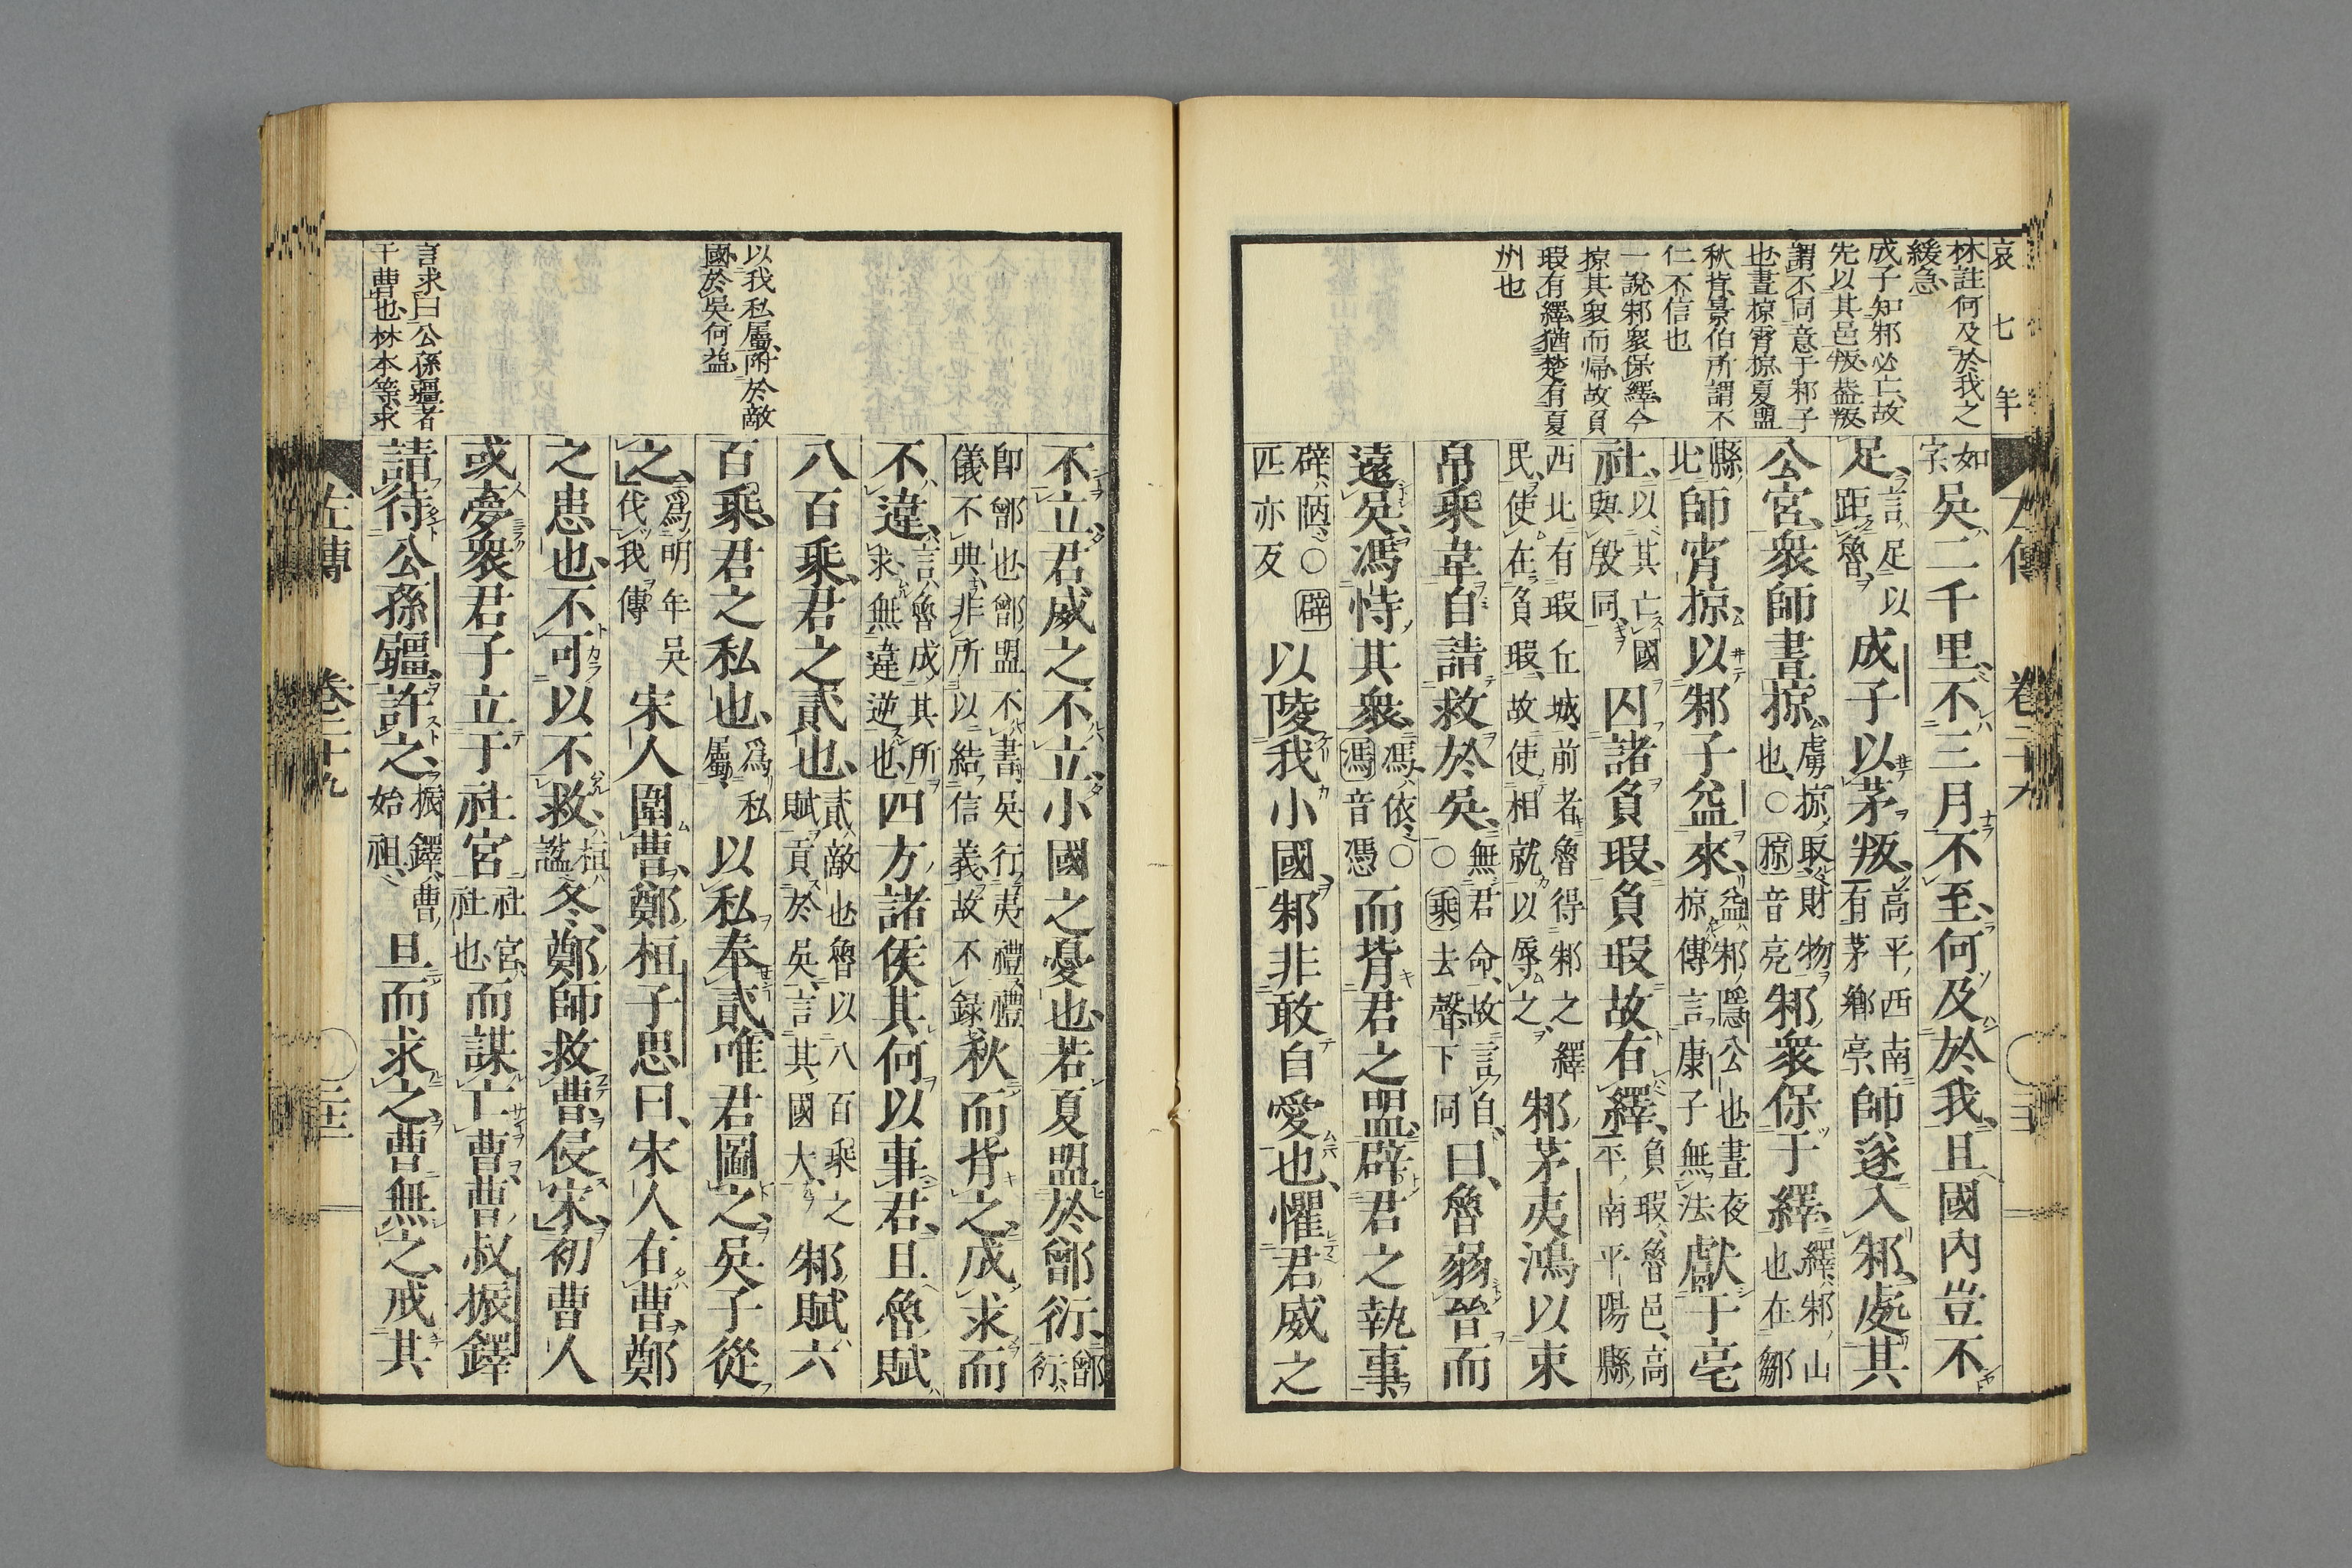 哀七年
林註何及於我之
緩急
成子知邾必亡故
先以其邑叛蓋叛
謂不同意于邾子
也晝掠宵掠夏盟
秋背景伯所謂不
仁不信也
一說邾衆保繹今
掠其衆而歸故負
瑕有繹猶楚有夏
州也
左傳 卷二十九
如字吳二千里不三月不至何及於我且國內豈不
足言足以距魯成子以茅叛高平西南有茅鄉亭師遂入邾處其
公宮衆師晝掠虜掠取財物也○掠音亮邾衆保于繹繹邾山也在鄒
縣北師宵掠以邾子益來益邾隱公也晝夜掠傳言康子無法獻于亳
社以其亡國與殷同囚諸負瑕負瑕故有繹負瑕魯邑高平南平陽縣
西北有瑕丘城前者魯得邾之繹民使在負瑕故使相就以辱之邾茅夷鴻以束
帛乘韋自請救於吳無君命故言自○乘去聲下同曰魯弱晉而
遠吳馮恃其衆馮依○馮音憑而背君之盟辟君之執事
辟陋○辟匹亦反以陵我小國邾非敢自愛也懼君威之
以我私屬附於敵
國於吳何益
言求曰公孫彊者
干曹也林本等求
不立君威之不立小國之憂也若夏盟於鄫衍鄫衍
卽鄫也鄫盟不書吳行夷禮禮儀不典非所以結信義故不録秋而背之成求而
不違言魯成其所求無違逆也四方諸侯其何以事君且魯賦
八百乘君之貳也貳敵也魯以八百乘之賦貢於吳言其國大邾賦六
百乘君之私也爲私屬以私奉貳唯君圖之吳子從
之爲明年吳伐我傳宋人圍曹鄭桓子思曰宋人有曹鄭
之患也不可以不救桓謚冬鄭師救曹侵宋初曹人
或夢衆君子立于社宮社宮社也而謀亡曹曹叔振鐸
請待公孫彊許之振鐸曹始祖旦而求之曹無之戒其
左傳 卷二十九